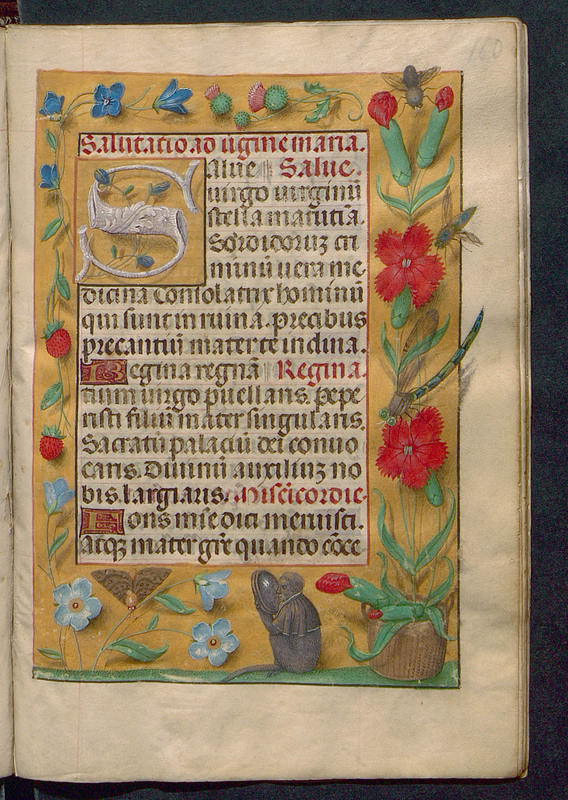 160
Salutatio ad v̄ginē maria.
Salue Salue.
uirgo uirginū
stella matutīa.
Sordidorūz cri
minū uera me-
dicina consolatrix hominū
qui sunt in ruina. precibus
precantiū mater te inclina.
Regina regnā Regina.
tium uirgo puellaris. pepe
risti filiū mater singularis.
Sacratū palaciū dei conuo
caris. Diuinū auxiliūz no
bis largiaris. Misericordie.
Fons mīe dici meruisti.
Atqz mater grē quando cōce